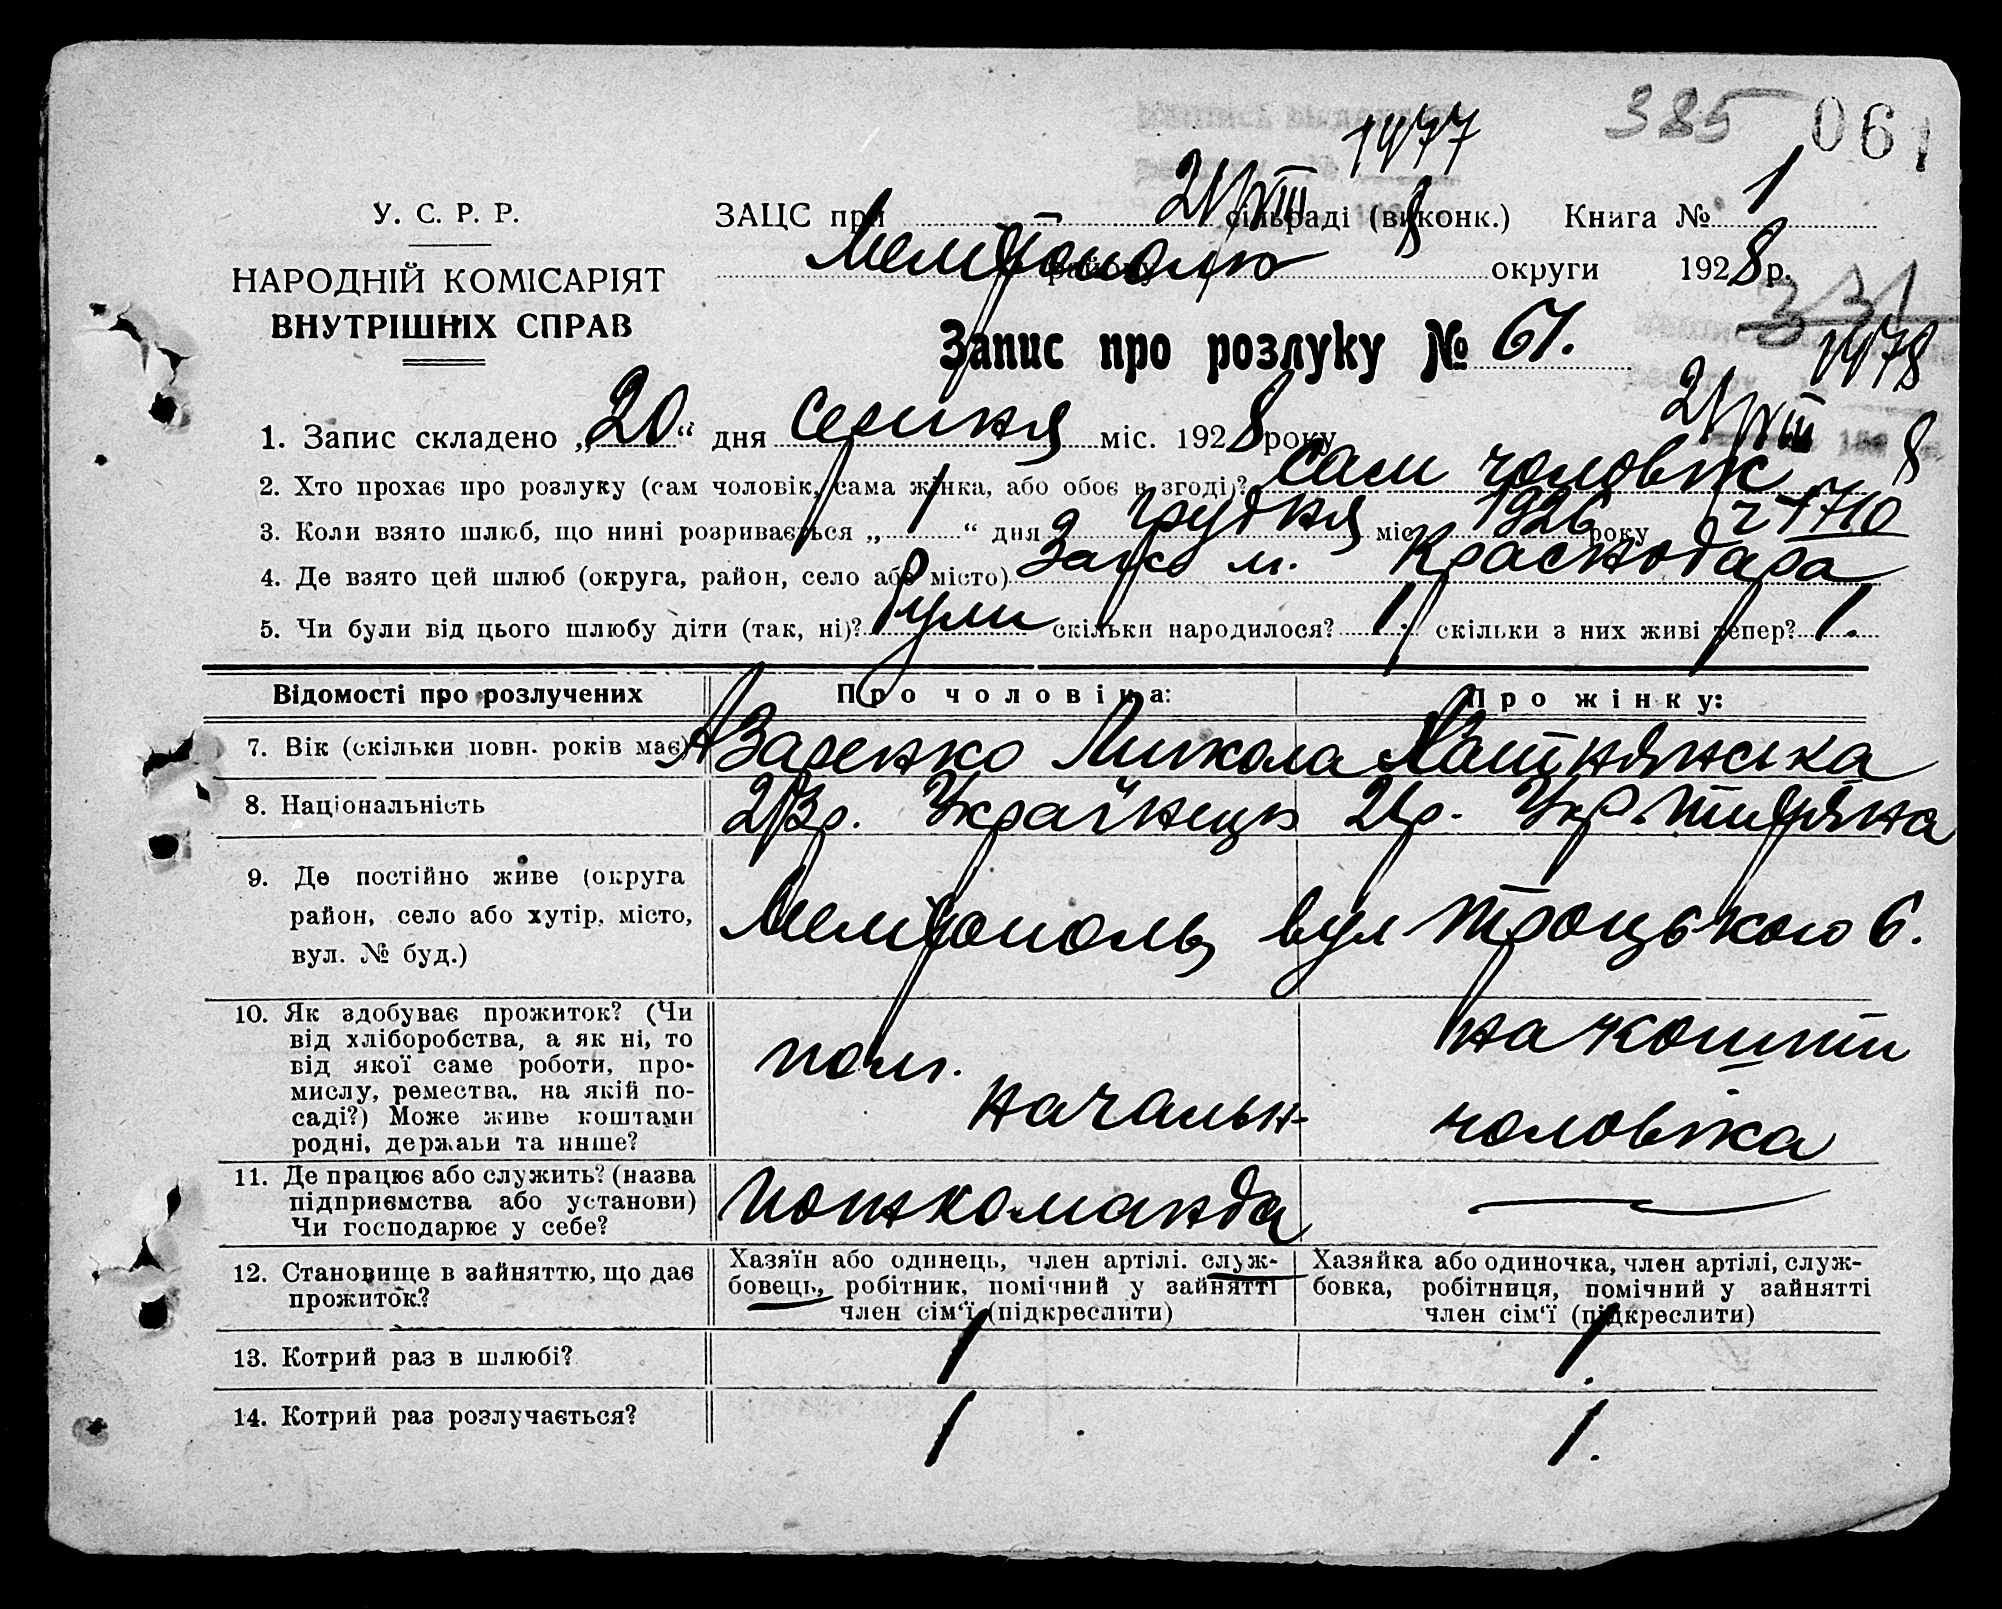 385 061
1477
21/VIII 8
У. С. Р. Р.
ЗАЦС при сільраді (виконк.) Книга № 1
Мелітополю району округи 1928 р.
НАРОДНІЙ КОМІСАРІЯТ
ВНУТРІШНІХ СПРАВ
331
Запис про розлуку № 61.
1478
21/VIII 8
1. Запис складено „20“ дня серпня міс. 1928 року
2. Хто прохає про розлуку (сам чоловік, сама жінка, або обоє в згоді)? Сам чоловік
3. Коли взято шлюб, що нині розривається „1“ дня грудня міс. 1926 року ч 1710
4. Де взято цей шлюб (округа, район, село або місто) Загс м. Краснодара
5. Чи були від цього шлюбу діти (так, ні)? були скільки народилося? 1. скільки з них живі тепер? 1.
Відомості про розлучених Про чоловіка: Про жінку:
7. Вік (скільки повн. років має) Азаренко Микола
8. Національність 23р. Українець 21р. Укр.
9. Де постійно живе (округа
район, село або хутір, місто,
вул. № буд.)
Мелітополь, вул Троцького 6.
10. Як здобуває прожиток? (Чи
від хліборобства, а як ні, то
від якої саме роботи, про-
мислу, ремества, на якій по-
саді?) Може живе коштами
родні, держави та инше?
пом. начальн.
на кошти чоловіка
11. Де працює або служить? (назва
підприємства або установи)
Чи господарює у себе?
пожкоманда
12. Становище в зайняттю, що дає
прожиток?
Хазяїн або одинець, член артілі, служ-
бовець, робітник, помічний у зайнятті
член сім‘ї (підкреслити)
Хазяйка або одиночка, член артілі, служ-
бовка, робітниця, помічний у зайнятті
член сім‘ї (підкреслити)
13. Котрий раз в шлюбі? 1 1.
14. Котрий раз розлучається? 1 1.